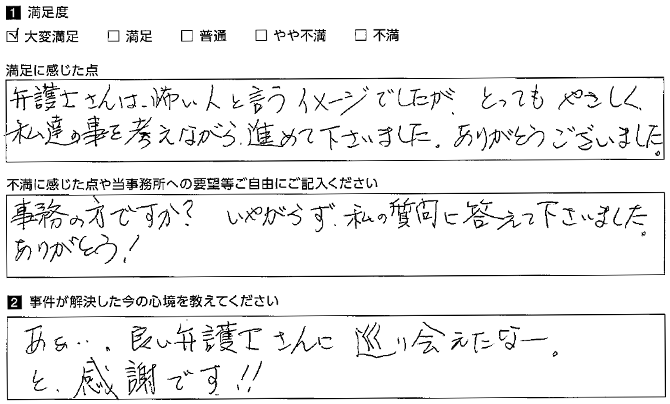 1 満足度
☑ 大変満足 □ 満足 □ 普通 □ やや不満 □ 不満
満足に感じた点
弁護士さんは、怖い人と言うイメージでしたが、とってもやさしく、
私達の事を考えながら、進めて下さいました。ありがとうございました。
不満に感じた点や当事務所への要望等ご自由にご記入ください
事務の方ですか? いやがらず、私の質問に答えて下さいました。
ありがとう!
2 事件が解決した今の心境を教えてください
あぁ…。良い弁護士さんに巡り会えたなー。
と、感謝です!!